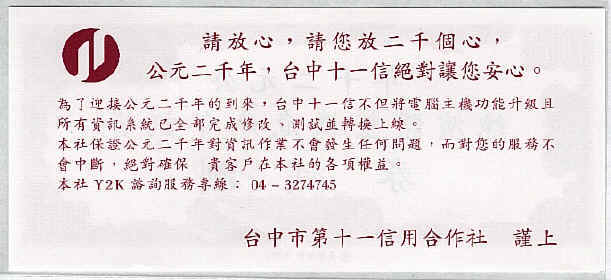 請放心，請您放二千個心，
公元二千年，台中十一信絕對讓您安心。
為了迎接公元二千年的到來，台中十一信不但將電腦主機功能升級且
所有資訊系統已全部完成修改、測試並轉換上線。
本社保證公元二千年對資訊作業不會發生任何問題，而對您的服務不
會中斷，絕對確保　貴客戶在本社的各項權益。
本社 Y2K 諮詢服務專線： 04－3274745
台中市第十一信用合作社　謹上